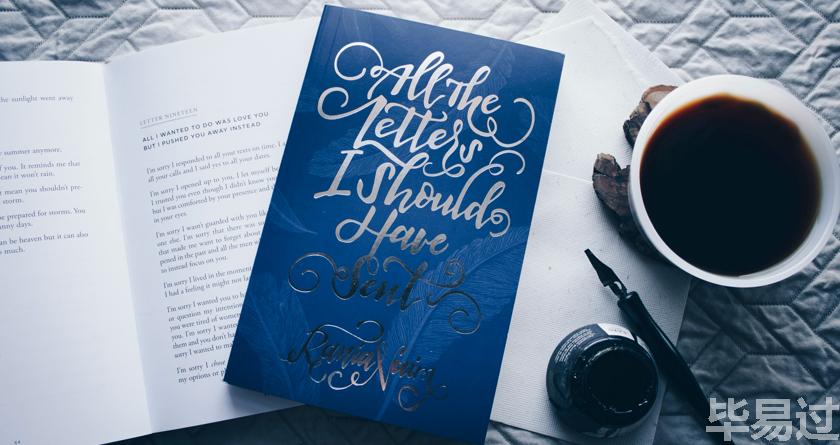 he sunlight went away
e summer anymore.
f you. It reminds me that
ean it won't rain.
t mean you shouldn't pre-
storm.
e prepared for storms. You
nny days.
an be heaven but it can also
s much.
64
LETTER NINETEEN
ALL I WANTED TO DO WAS LOVE YOU
BUT I PUSHED YOU AWAY INSTEAD
I'm sorry I responded to all your texts on time. I a
all your calls and I said yes to all your dates.
I'm sorry I opened up to you. I let myself be
I trusted you even though I didn't know you
but I was comforted by your presence and th
in your eyes.
I'm sorry I wasn't guarded with you like
one else. I'm sorry that there was so
that made me want to forget about
pened in the past and all the men w
to instead focus on you.
I'm sorry I lived in the moment
I had a feeling it might not las
I'm sorry I wanted you to b
or question my intention
you were tired of women
them and you don't ha
sorry I wanted to ma
I'm sorry I chos
my options or p
All the
Letters
I Should
Have
Sent
Rania Naim
毕易过